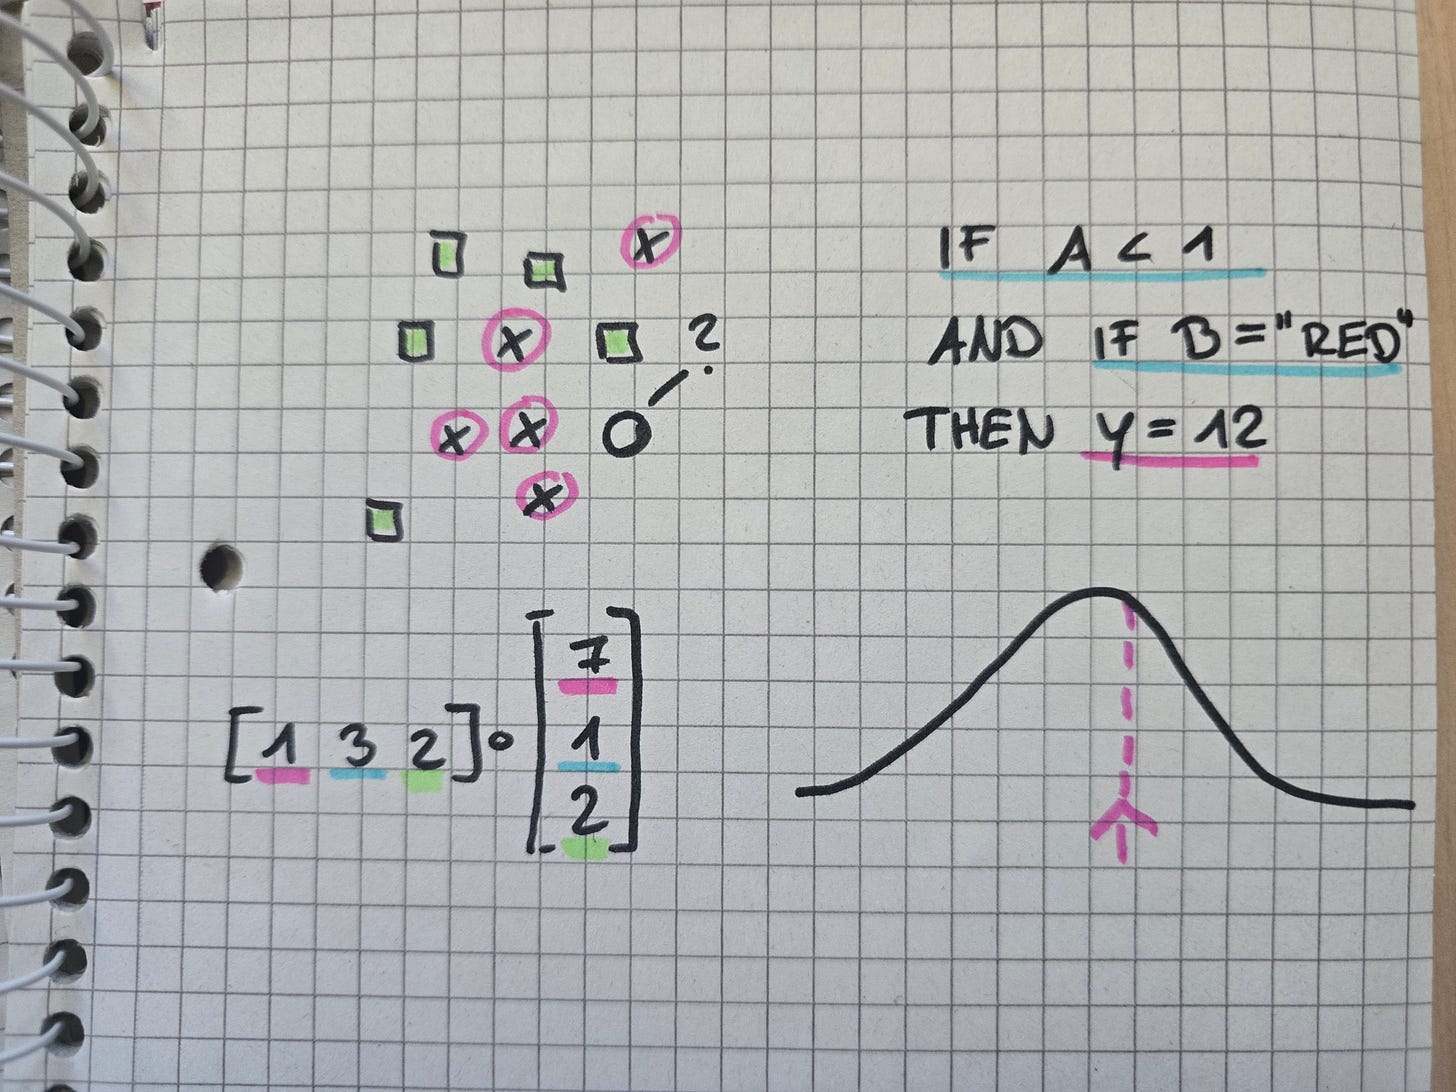 x
x ?
x x
x
IF A < 1
AND IF B = "RED"
THEN y = 12
[1 3 2] ∘ [7
1
2]